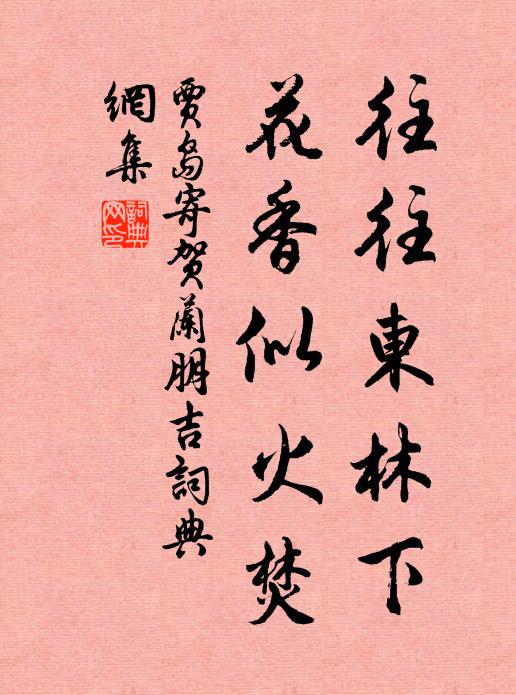 往往東林下
花香似火焚
賈島寄賀蘭朋吉詞典
網集
詞典
网印